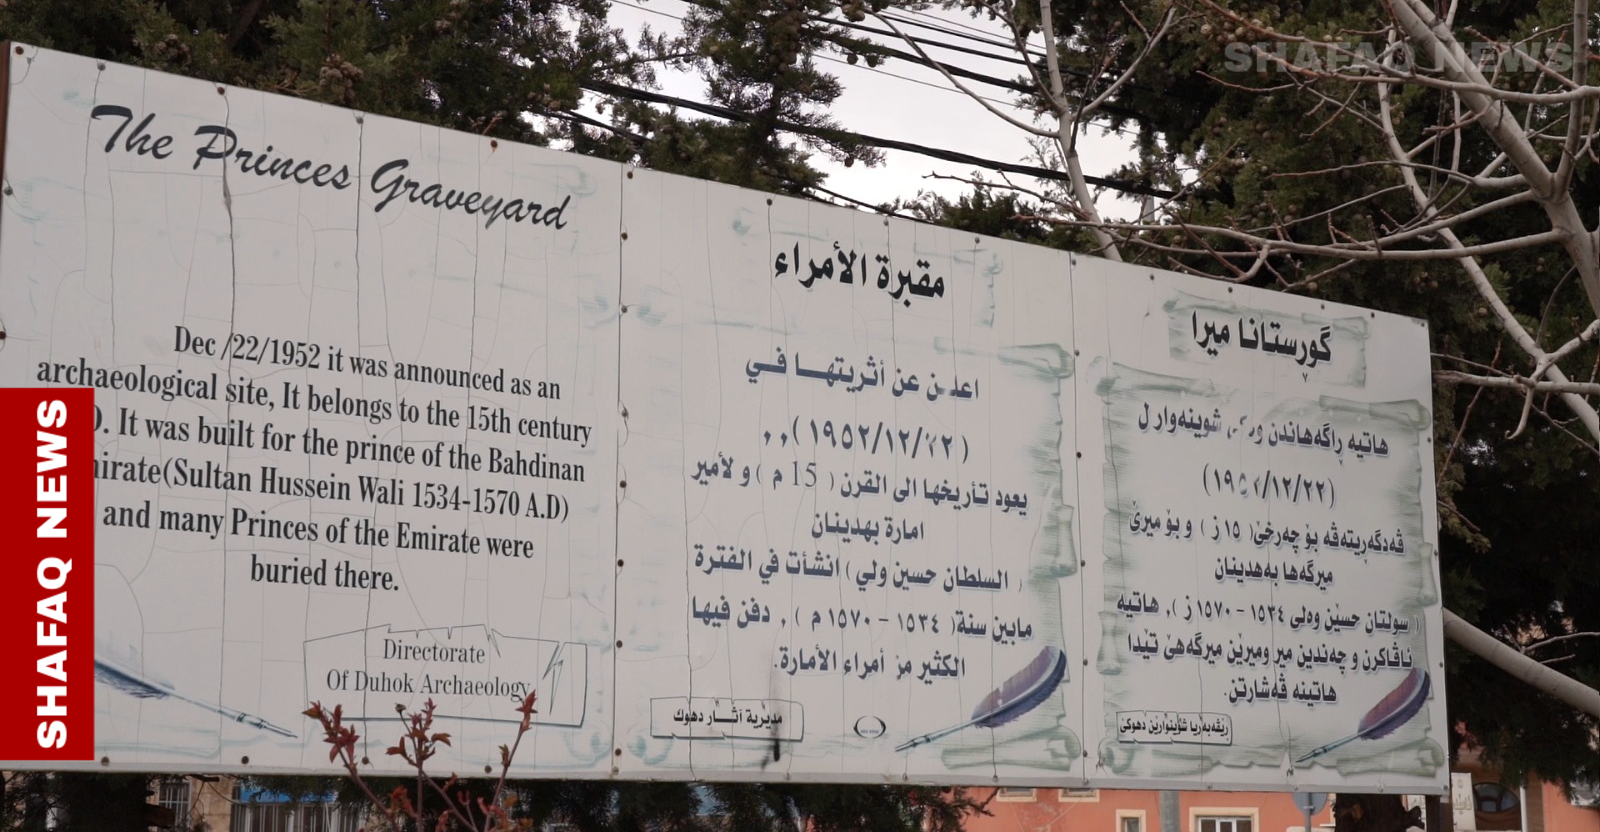 SHAFAQ NEWS
SHAFAQ NEWS
The Princes Graveyard
Dec /22/1952 it was announced as an
archaeological site, It belongs to the 15th century
. It was built for the prince of the Bahdinan
(Sultan Hussein Wali 1534-1570 A.D)
and many Princes of the Emirate were
buried there.
Directorate
Of Duhok Archaeology
مقبرة الأمراء
اعلن عن أثريتها في
(١٩٥٢/١٢/٢٢),,
يعود تأريخها الى القرن ( 15 م ) و لأمير
امارة بهدينان
( السلطان حسين ولي ) انشأت في الفترة
مابين سنة( ١٥٣٤ - ١٥٧٠ م ) , دفن فيها
الكثير من أمراء الأمارة.
مديرية آثار دهوك
گورستانا میرا
هاتیە ڕاگەهاندن شوینەوار ل
(٢٢/١٢/)
ڤەدگەڕیتەڤە بۆ چەرخێ( ١٥ ز ) و بۆ میرێ
میرگەها بەهدینان
( سولتان حسێن وەلی ١٥٣٤ - ١٥٧٠ ز ), هاتیە
ئاڤاکرن و چەندین میر ومیرێن میرگەهێ تێدا
هاتینە ڤەشارتن.
رێڤەبەریا شوێنوارێن دهوکێ